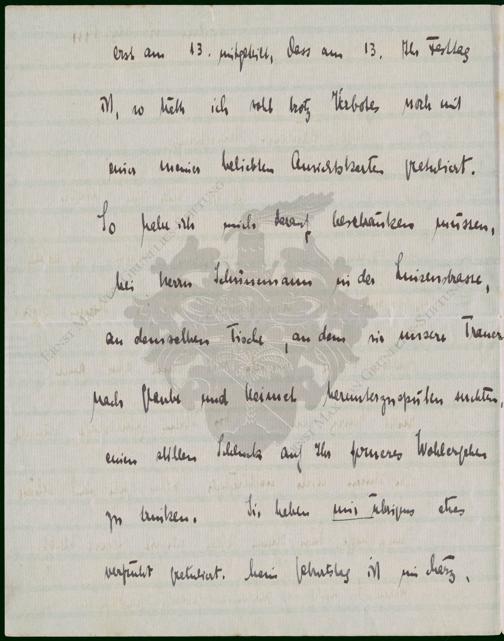 erst am 13. mitgeteilt, dass am 13. Ihr Festtag
ist, so hätt ich wohl trotz Verbotes noch mit
einer meiner beliebten Ansichtskarten gratuliert.
So habe ich mich darauf beschränken müssen,
bei Herrn Schünemann in der Luisenstrasse,
an demselben Tische, an dem wir unsere Trauer
nach Glaube und Heimat herunterzuspülen suchten,
einen stillen Schluck auf Ihr ferneres Wohlergehen
zu trinken. Sie haben mir übrigens etwas
verfrüht gratuliert. Mein Geburtstag ist im März,
ERNST MAX VON GRUNELIUS-STIFTUNG
ERNST MAX VON GRUNELIUS-STIFTUNG